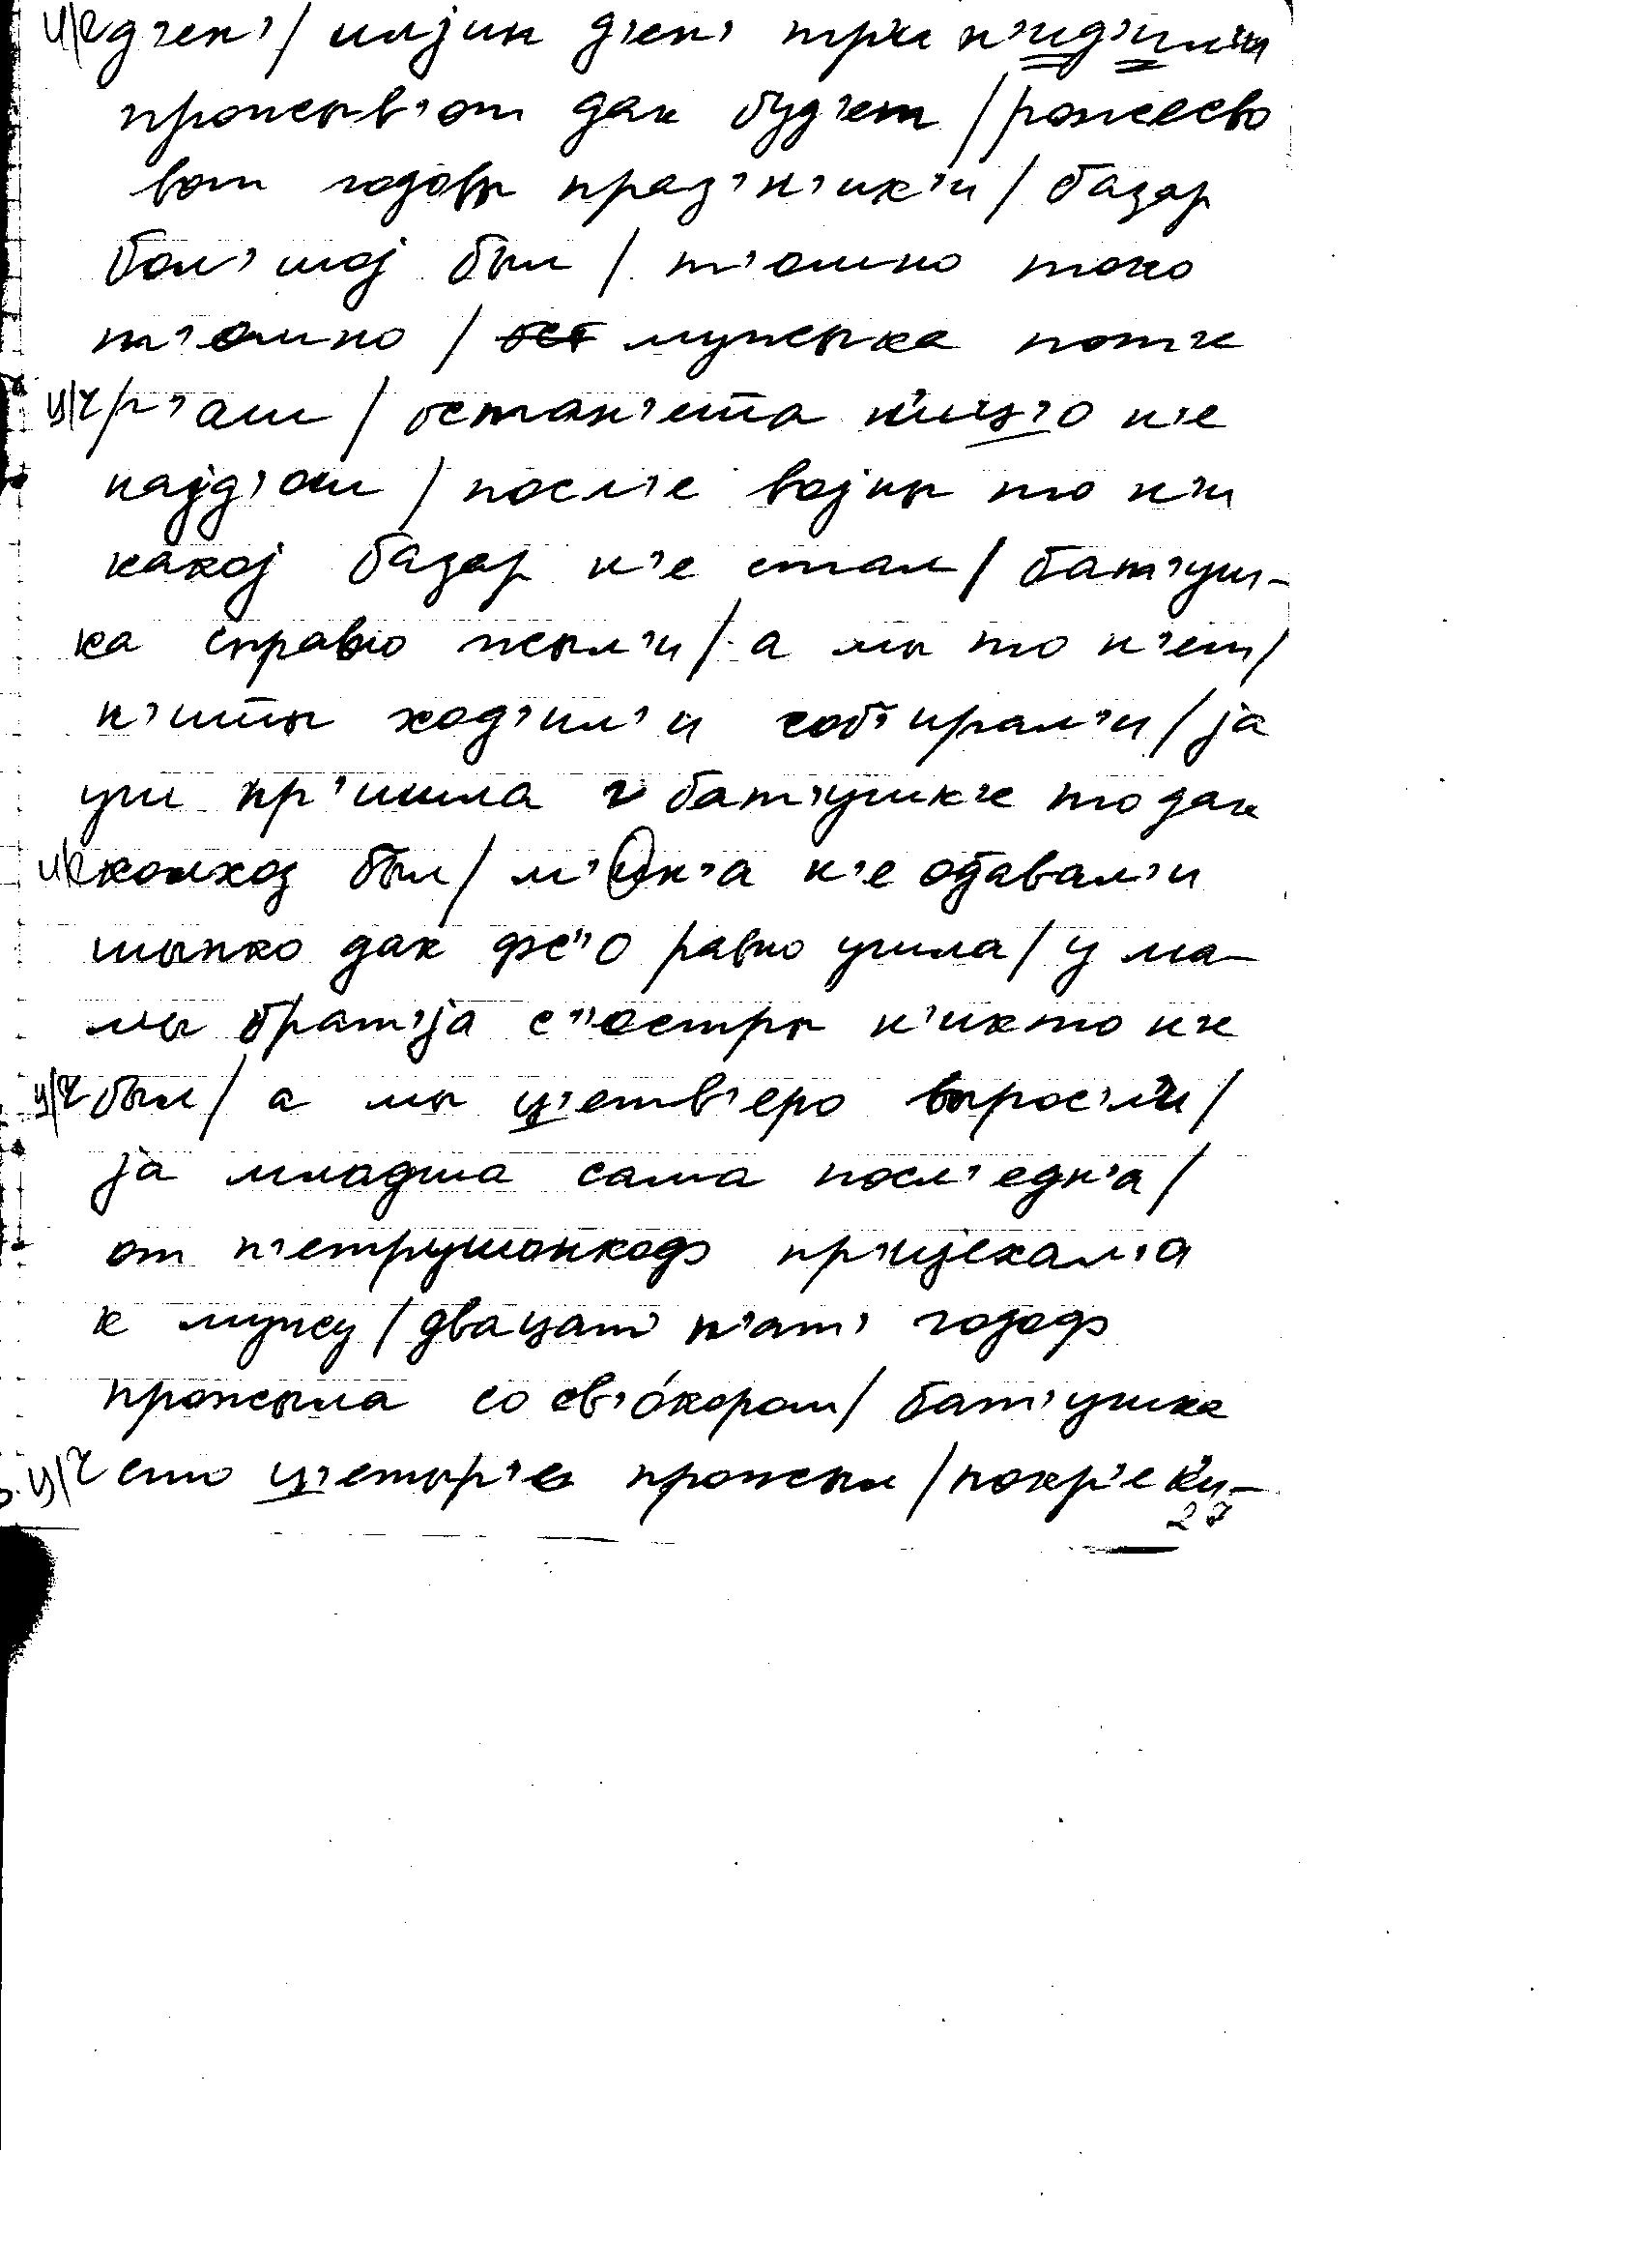 и/е д'ен'/ил'јин д'ен' тр'и н'ид'ил'и
прожыв'от дак буд'ет/рожесво
вот годовы праз'н'ик'и/базар
бол'шој был/т'омно токо
т'омно/ост мужыка пот'е
ц/ч р'аш/останешса н'иц'о н'е
најд'ош/посл'е војны то н'и
какој базар н'е стал/бат'уш-
ка справно жыл'и/а мы то н'ет/
н'ишшы ход'ил'и соб'ирал'и/ја
уш пр'ишла г бат'ушк'е то дак
и/е колхоз был/м'ин'а н'е одавал'и
шыпко дак фс'о равно ушла/у ма-
мы брат'ја с'остры н'икто н'е
ц/ч был/а мы ц'етв'еро вырос'л'и/
ја младша сама посл'едн'а/
от п'етрушонкоф пр'ијехала
к мужу/двацат' п'ат' годоф
прожыла со св'о́кором/бат'ушка
ц/ч сто ц'етыр'е прожыл/покр'епк'и-
27